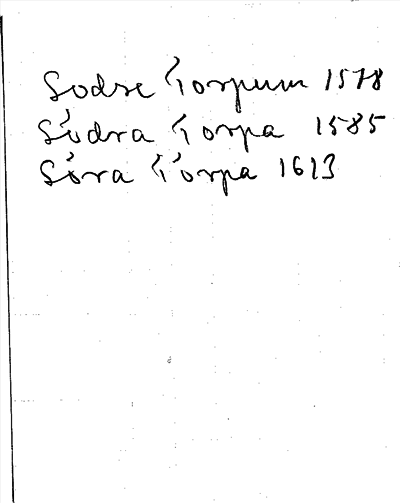 Sodre Torpum 1578
Södra Torpa 1585
Söra Torpa 1613